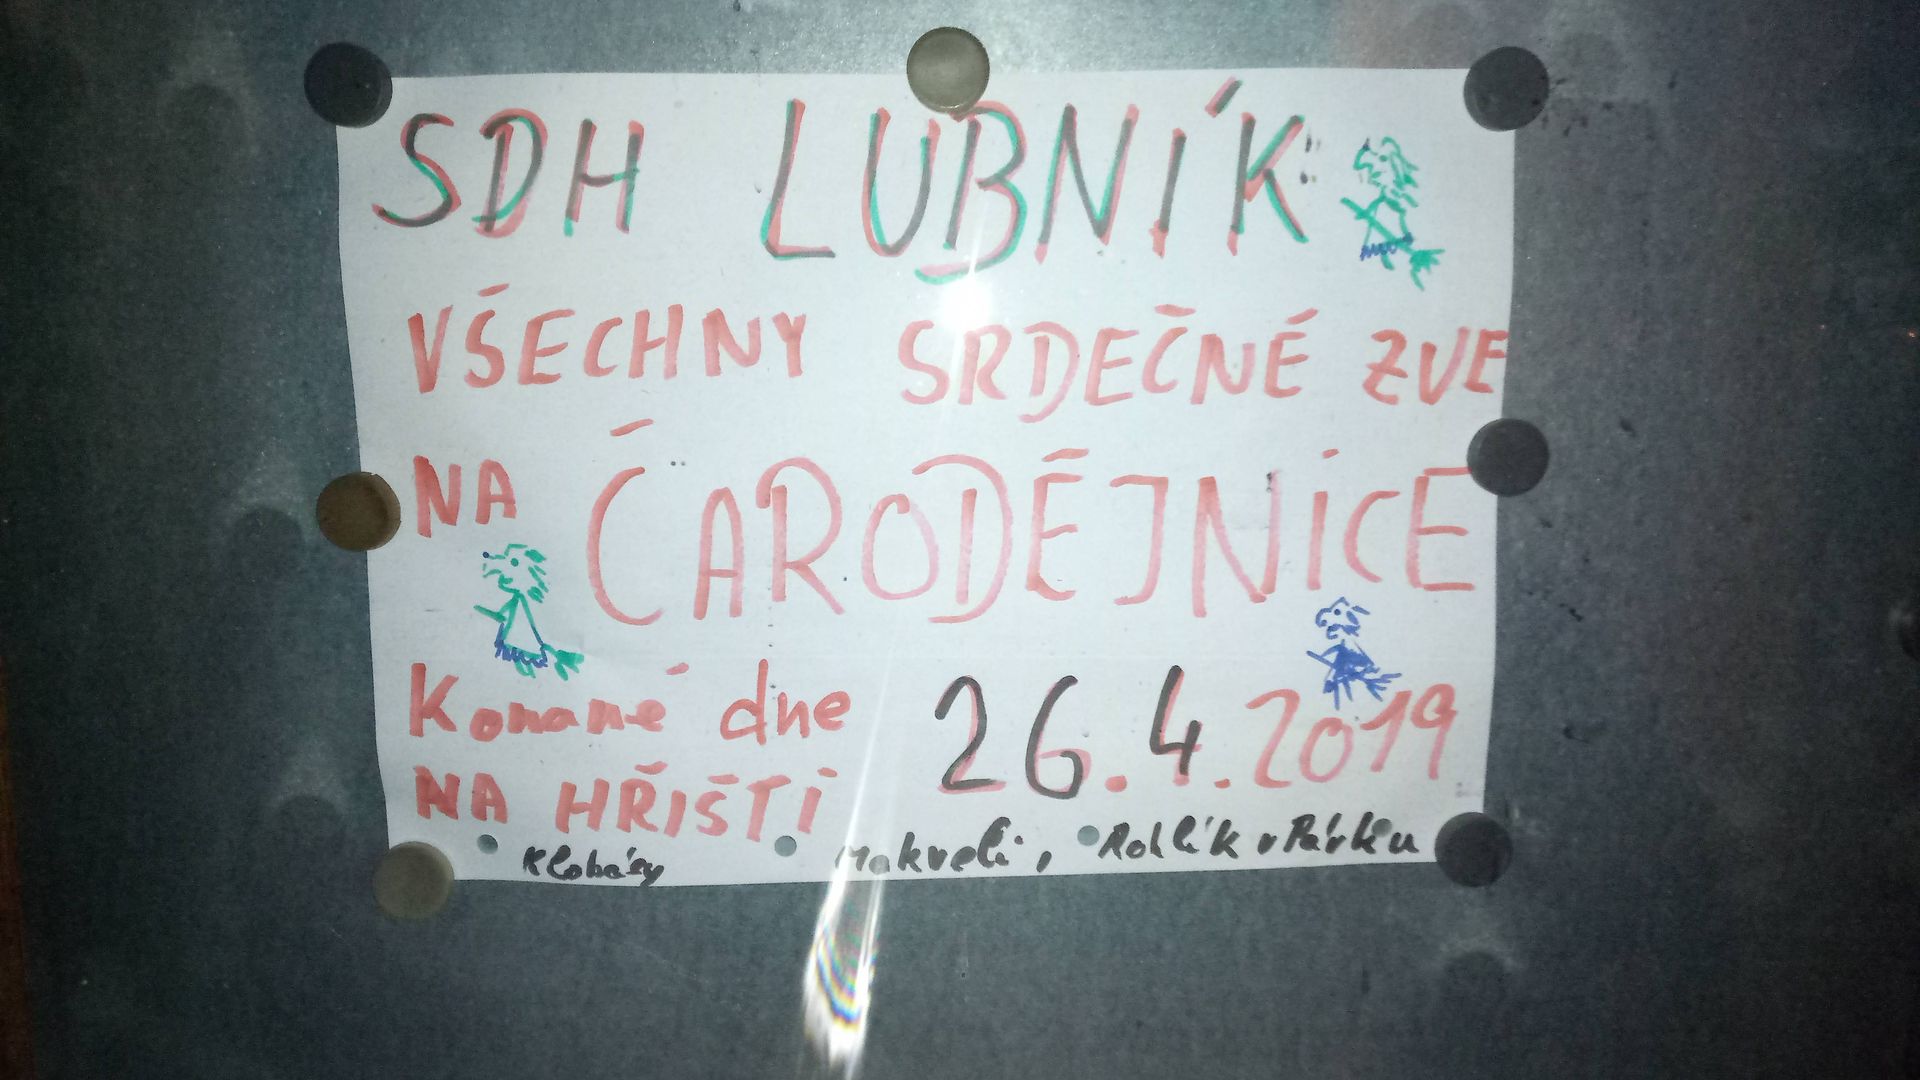 SDH LUBNÍK
VŠECHNY SRDEČNĚ ZVE
NA ČARODĚJNICE
Konané dne 26.4.2019
NA HŘIŠTI
• Klobásy • Makreli, • Rohlík v Párku